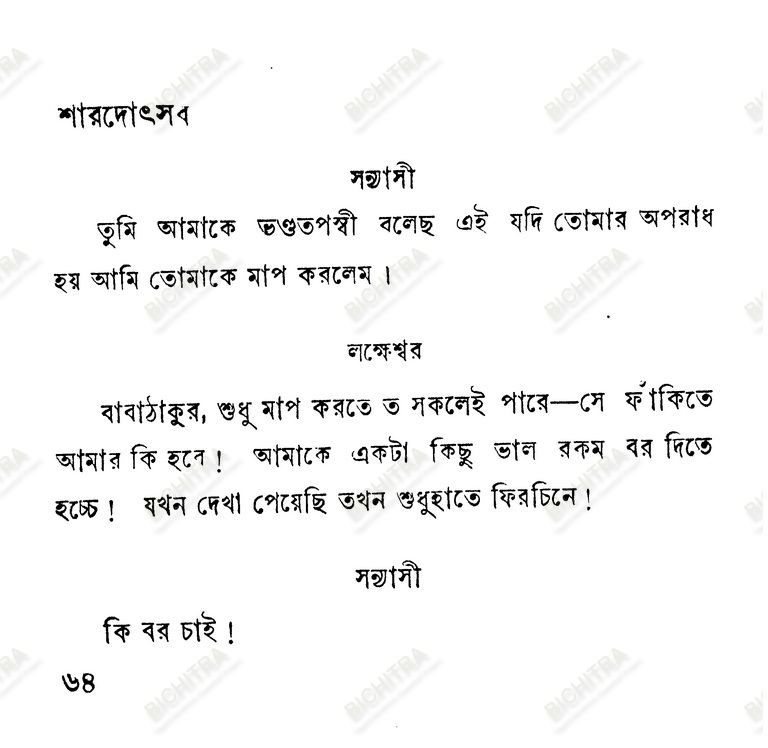 শারদোৎসব
সন্ন্যাসী
তুমি আমাকে ভণ্ডতপস্বী বলেছ এই যদি তোমার অপরাধ
হয় আমি তোমাকে মাপ করলেম ।
লক্ষেশ্বর
বাবাঠাকুর, শুধু মাপ করতে ত সকলেই পারে—সে ফাঁকিতে
আমার কি হবে ! আমাকে একটা কিছু ভাল রকম বর দিতে
হচ্চে ! যখন দেখা পেয়েছি তখন শুধুহাতে ফিরচিনে !
সন্ন্যাসী
কি বর চাই !
৬৪